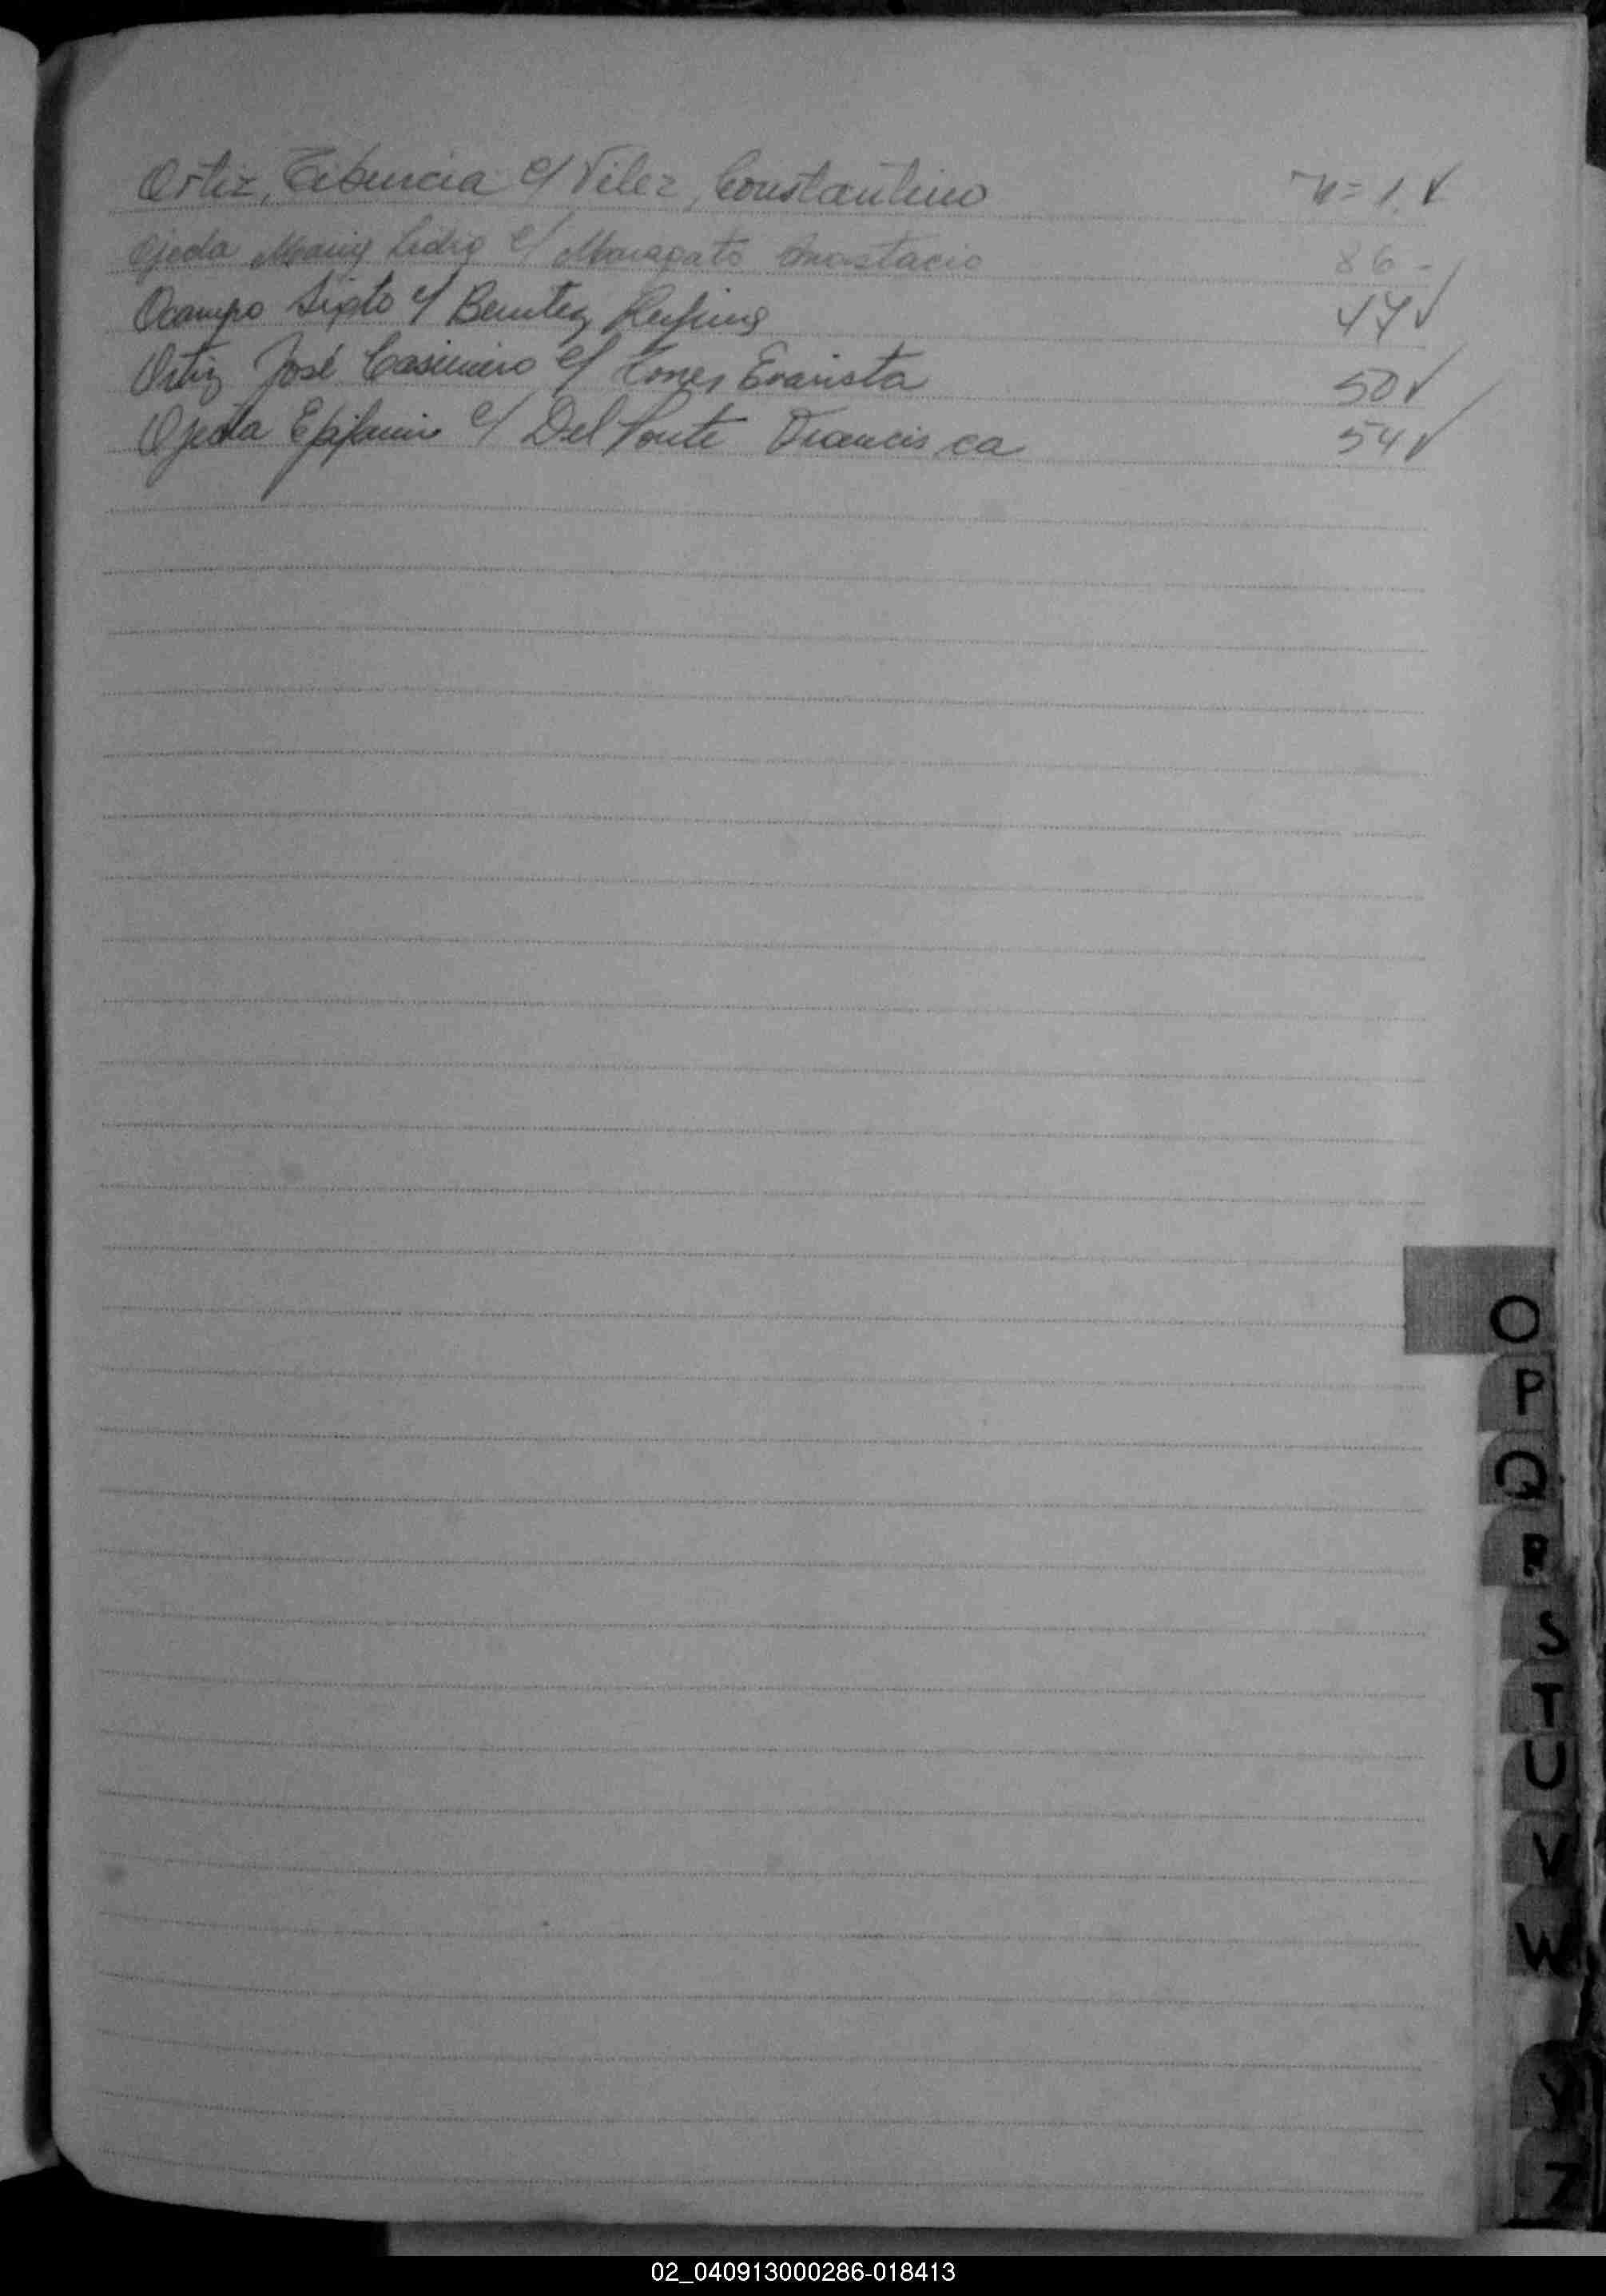 Ortiz, Tiburcia c/ Vilez, Constantino n= 1. ✓
Ojeda Maria Lidia c/ Maragato Anastacio 86 -
Ocampo Sixto c/ Benitez Rufina 44 ✓
Ortiz José Casimiro c/ Torres Evarista 50 ✓
Ojeda Epifanio c/ Del Ponte Francisca 54 ✓
O
P
Q
R
S
T
U
V
W
Y
Z
02_040913000286-018413